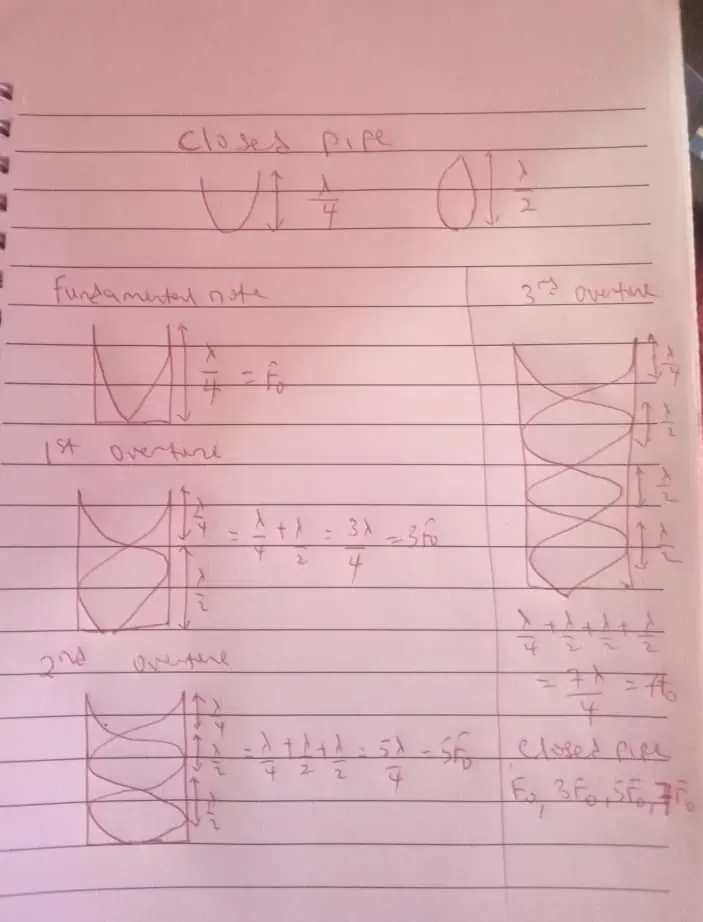 Closed pipe
λ/4 λ/2
Fundamental note
λ/4 = F₀
1st overture
λ/4
λ/2
= λ/4 + λ/2 = 3λ/4 = 3F₀
2nd overture
λ/4
λ/2
λ/2
= λ/4 + λ/2 + λ/2 = 5λ/4 = 5F₀
3rd overture
λ/4
λ/2
λ/2
λ/2
λ/4 + λ/2 + λ/2 + λ/2
= 7λ/4 = 7F₀
Closed pipe
F₀, 3F₀, 5F₀, 7F₀